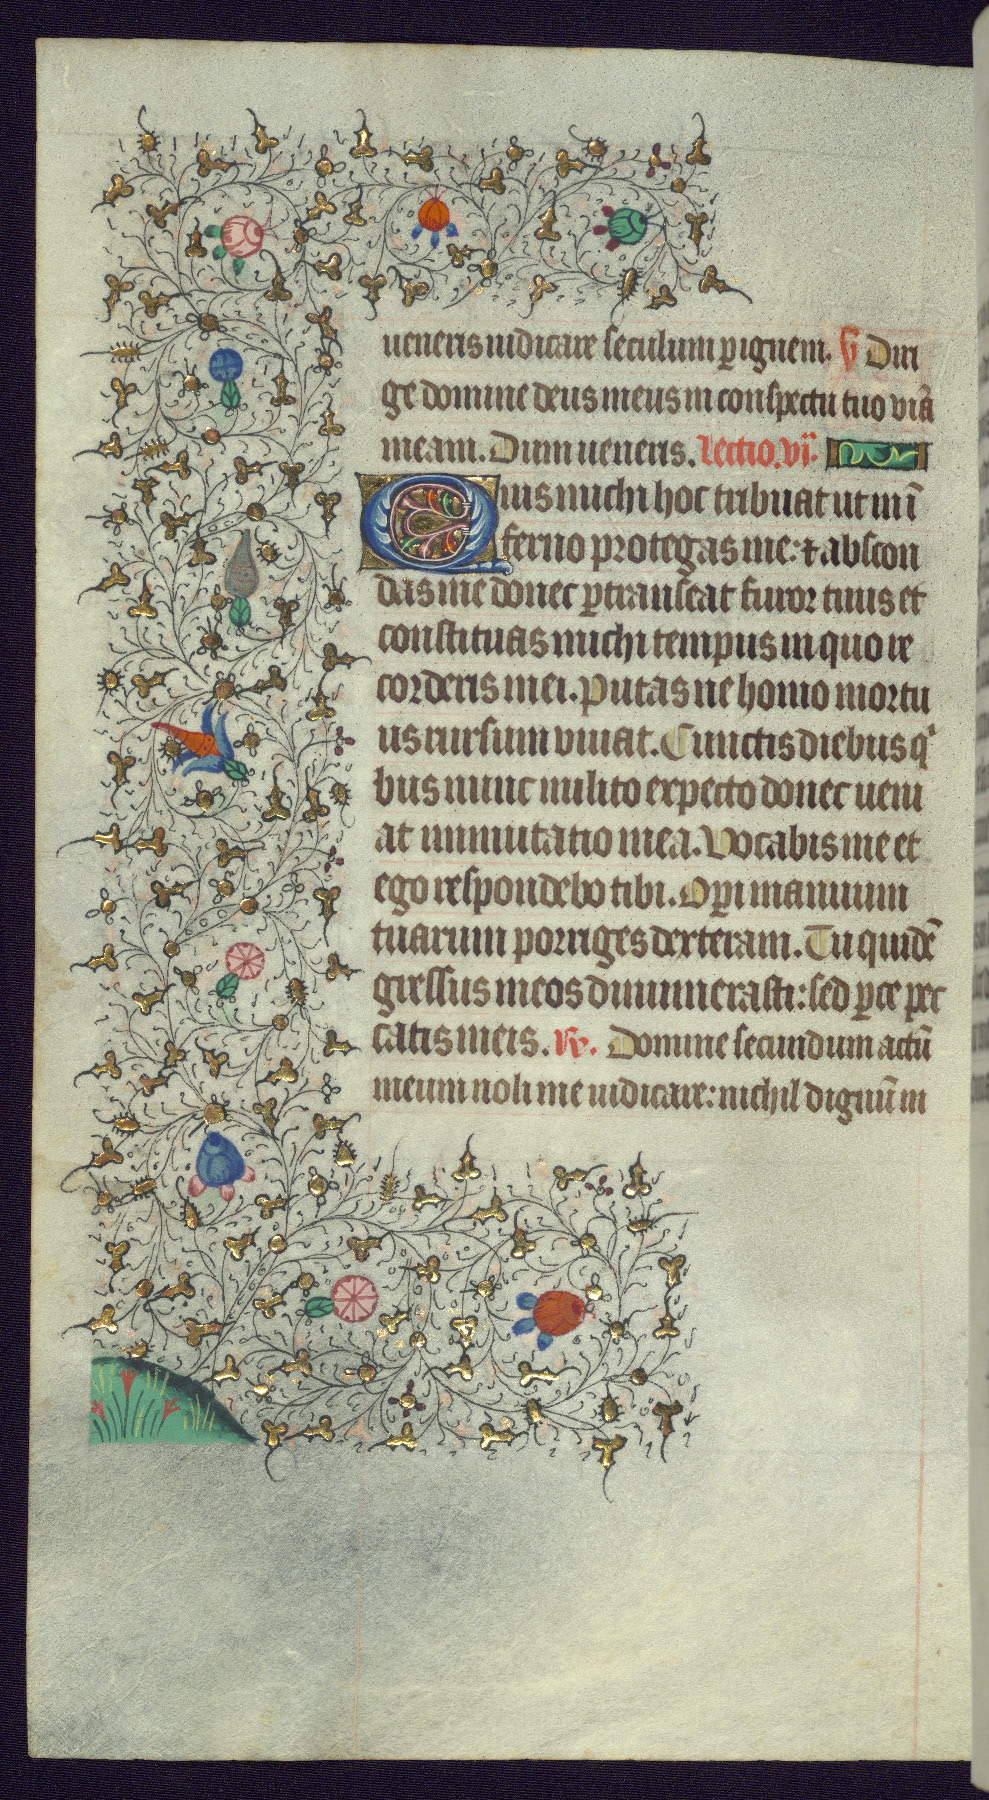 ueneris iudicare seculum ꝑ ignem. ℣ Diri
ge domine deus meus in conspectu tuo viā
meam. Dum ueneris. Lectio. vi.
Quis michi hoc tribuat ut in ī
ferno protegas me: ⁊ abscon
das me donec ꝑtranseat furor tuus et
constituas michi tempus in quo re
corderis mei. Putas ne homo mortu
us rursum viuat. Cunctis diebus qⁱ
bus nunc milito expecto donec ueni
at immutatio mea. Vocabis me et
ego respondebo tibi. Operi manuum
tuarum porriges dexteram. Tu quidē
gressus meos dinumerasti: sed ꝑce pec
catis meis. ℟. Domine secundum actū
meum noli me iudicare: nichil dignū in